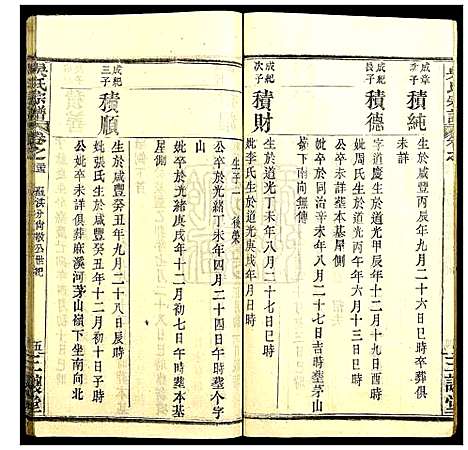 成章
次子
積純
生於咸豐丙辰年九月二十六日巳時卒葬俱
未詳
成紀
長子
積德
字道慶生於道光甲辰年十月十九日酉時
妣周氏生於道光丙午年六月十三日巳時
公卒未詳葬本基屋側
妣卒於同治辛未年八月二十七日吉時塟茅山
嶺下南向無傳
成紀
次子
積財
生於道光丁未年八月二十七日巳時
妣李氏生於道光庚戌年月日時
生子一 後榮
公卒於光緒丁未年四月二十四日午時塟个字
屋側
妣卒於光緒庚戌年十二月初七日午時塟本基
成紀
三子
積順
生於咸豐癸丑年九月二十八日辰時
妣張氏生於咸豐癸丑年十二月初十日子時
公妣卒未詳俱葬麻溪河茅山嶺下坐南向北
吳氏宗譜
卷之
世紀
五
三讓堂